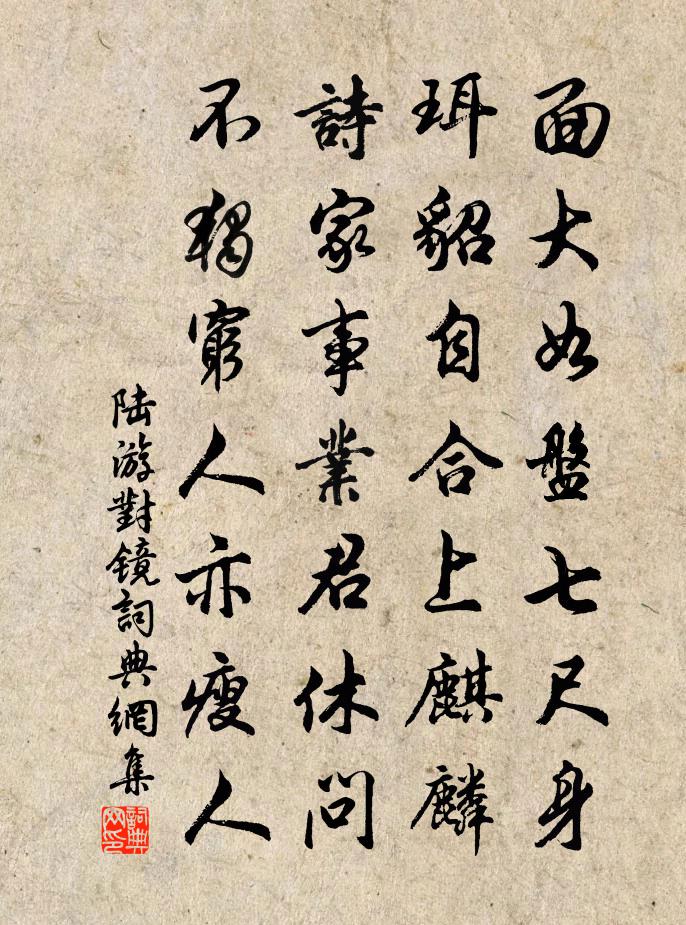 面大如盤七尺身
珥貂自合上麒麟
詩家事業君休問
不獨窮人亦瘦人
陆游對镜詞典網集
詞典
网印